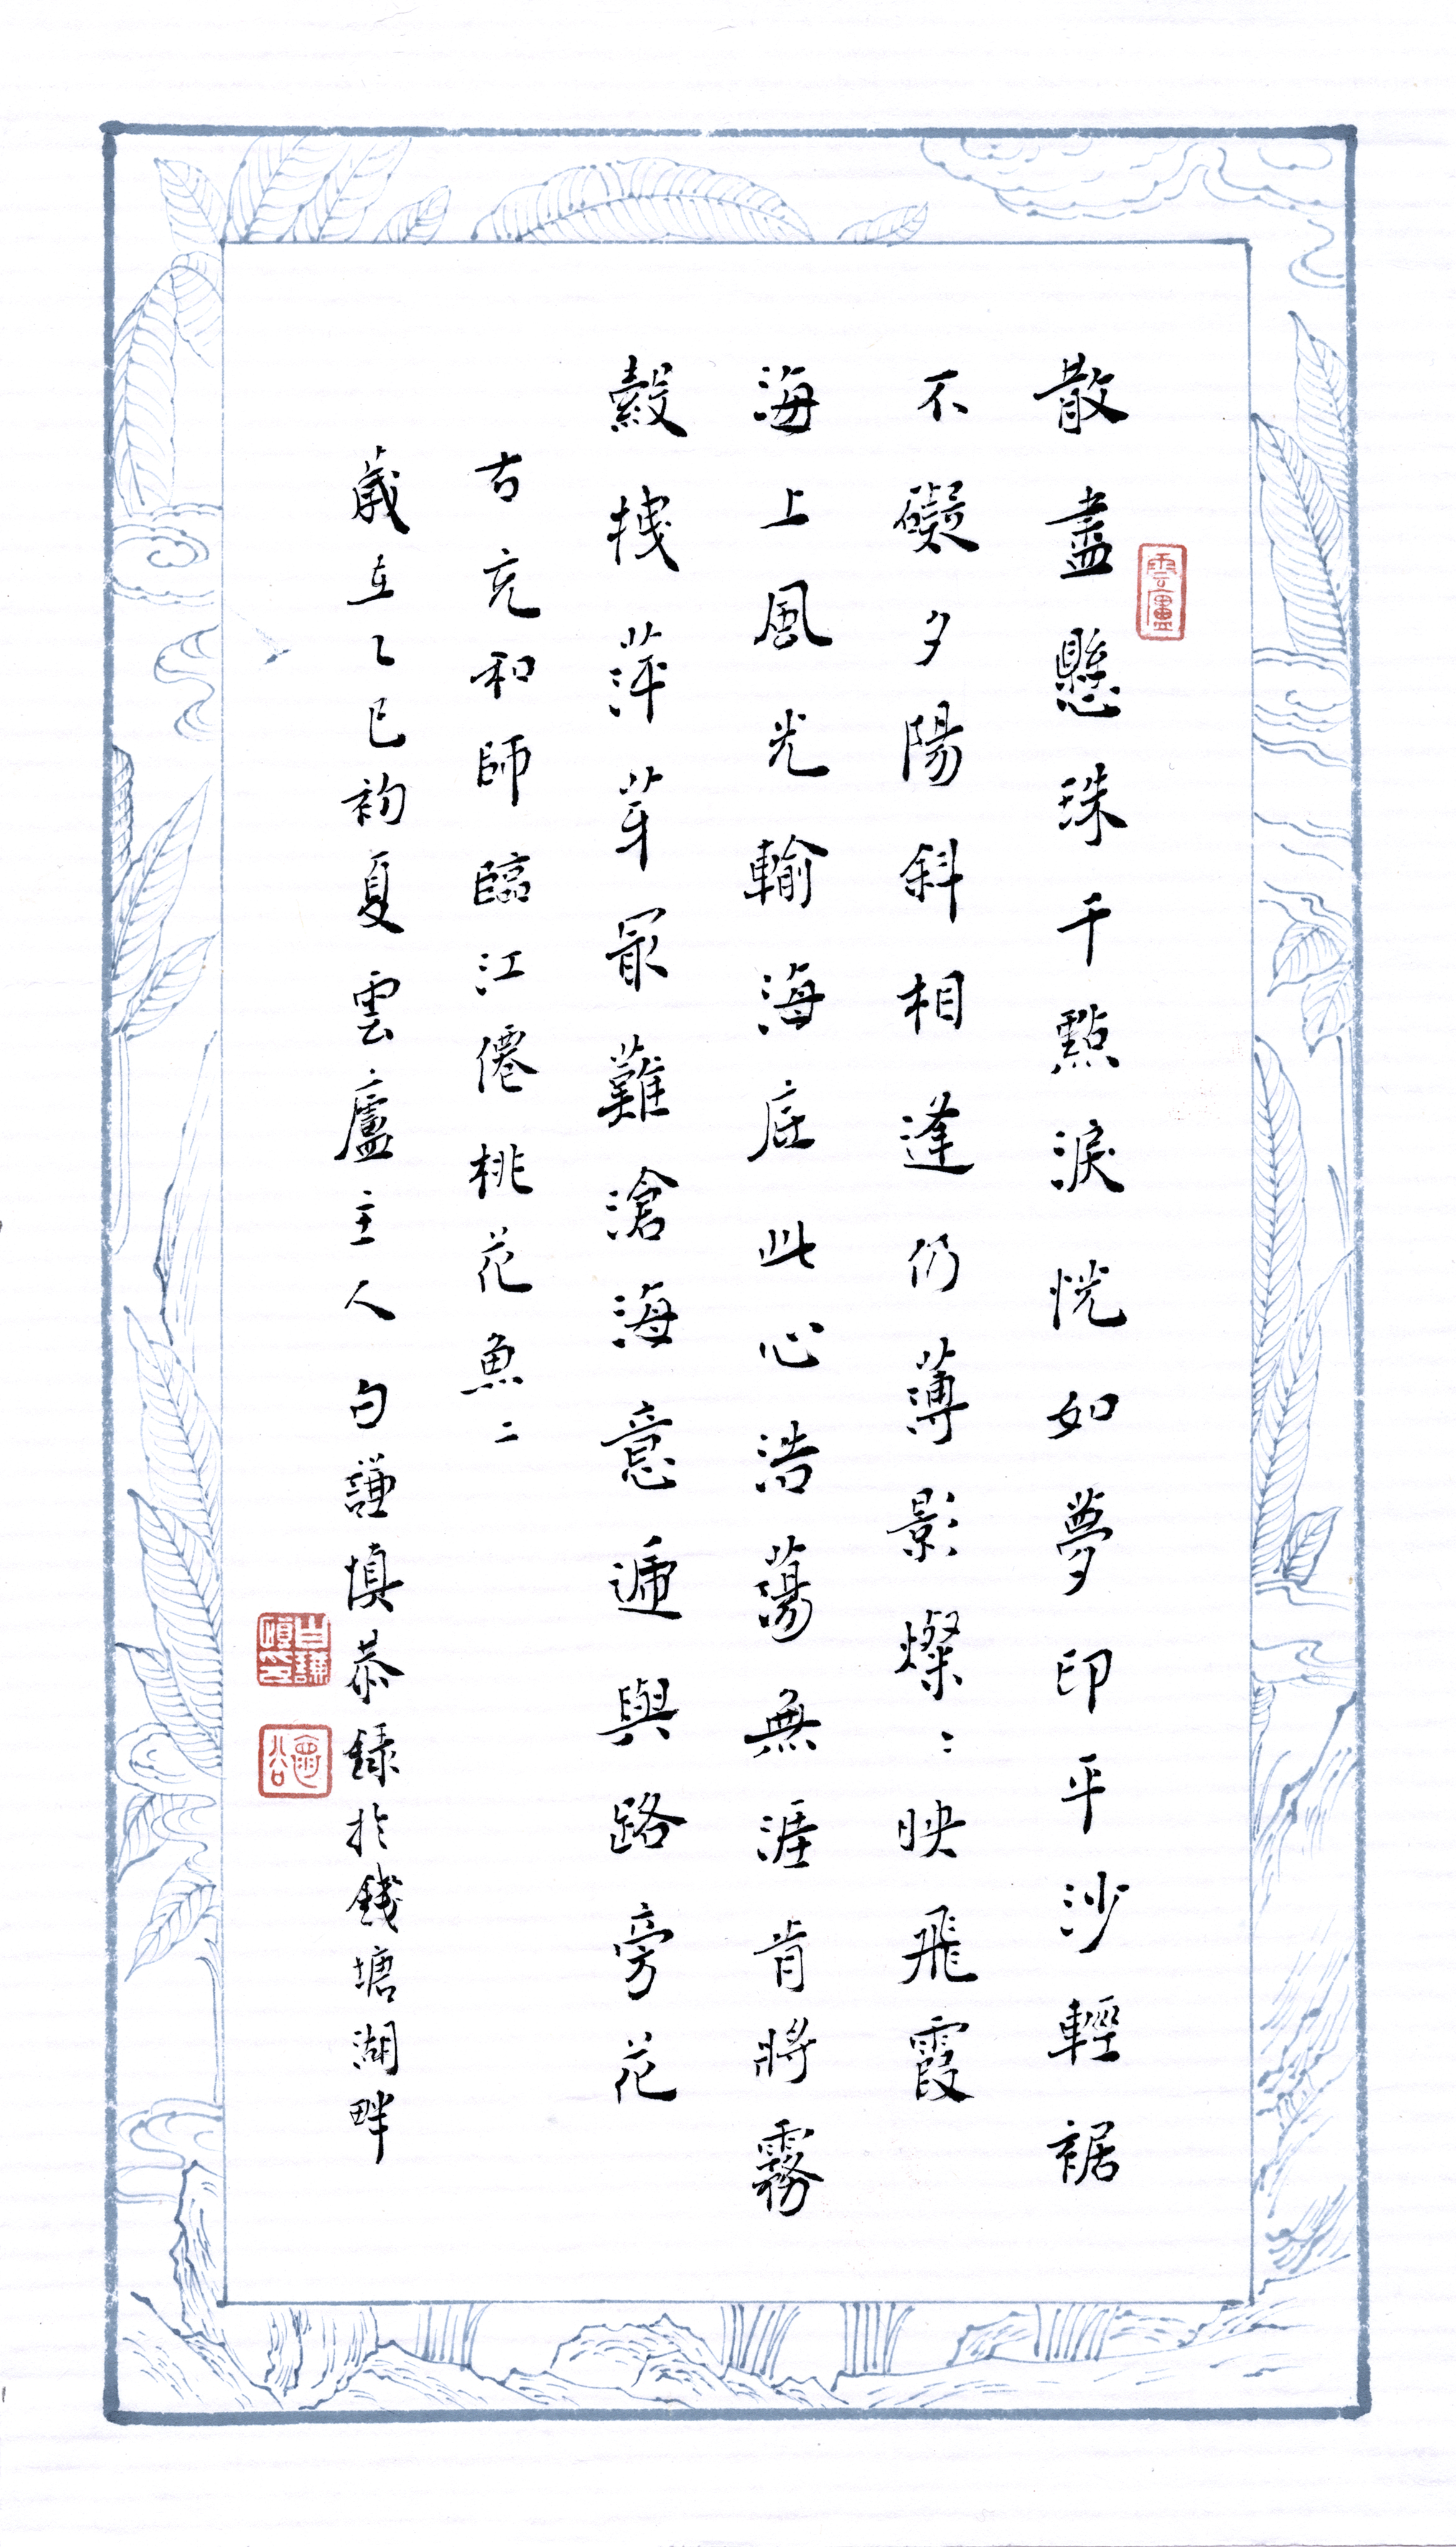 散盡懸珠千點淚恍如夢印平沙輕裾
不礙夕陽斜相逢仍薄影燦〻映飛霞
海上風光輸海底此心浩蕩無涯肯將霧
縠拽萍芽最難滄海意遞與路旁花
右充和師臨江僊桃花魚二
歲在乙巳初夏雲廬主人白謙慎恭錄於錢塘湖畔
雲廬
白謙慎印